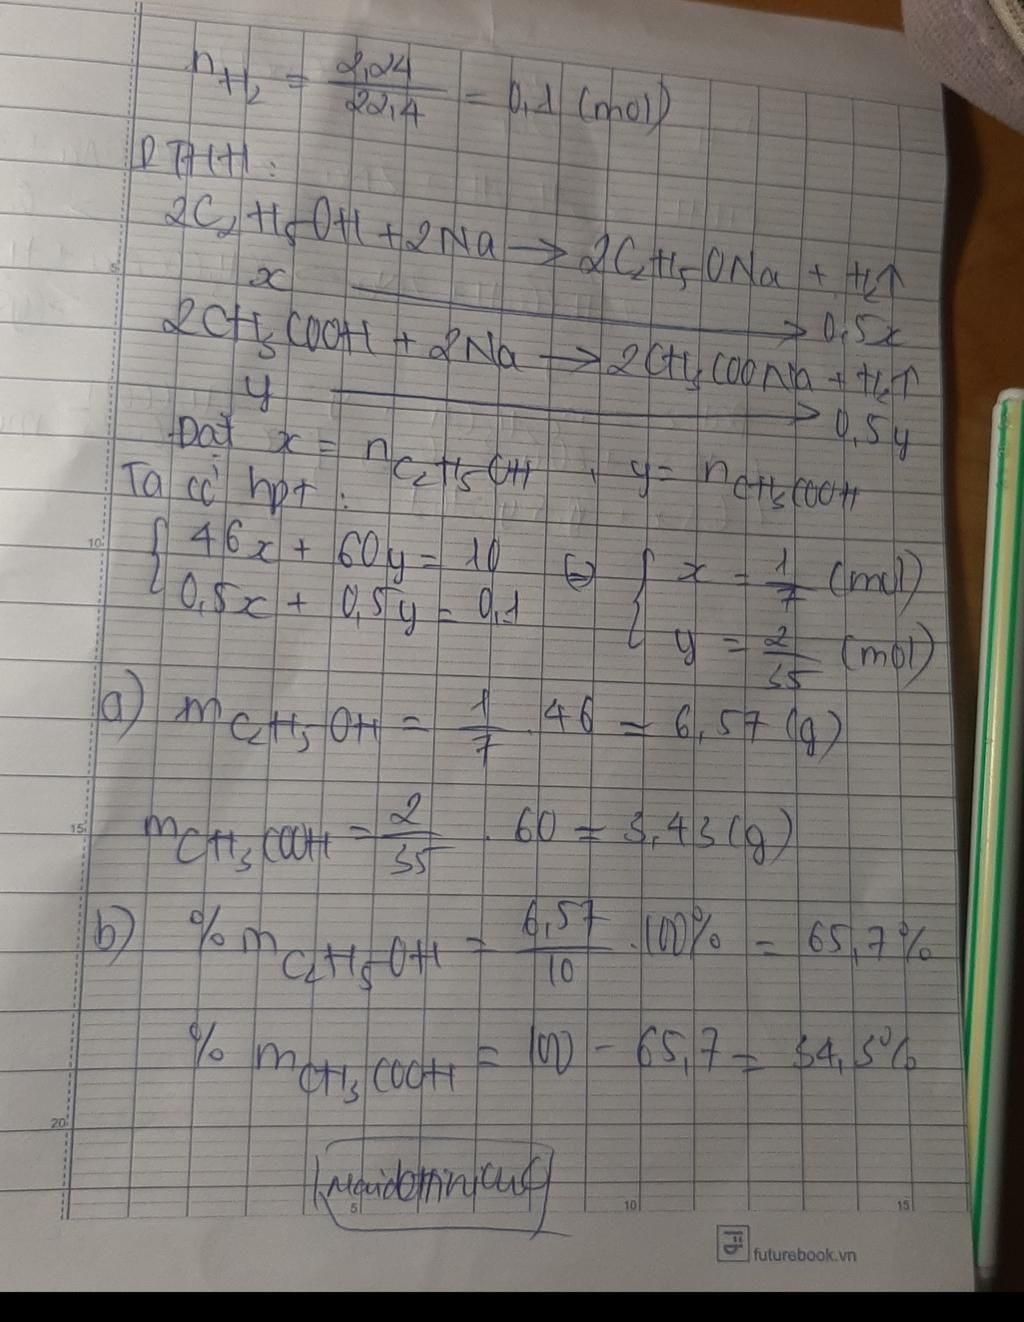 n_H₂ = 2,24/22,4 = 0,1 (mol)
PTHH:
2C₂H₅OH + 2Na → 2C₂H₅ONa + H₂↑
x → 0,5x
2CH₃COOH + 2Na → 2CH₃COONa + H₂↑
y → 0,5y
Đặt x = n_C₂H₅OH , y = n_CH₃COOH
Ta có hpt:
{ 46x + 60y = 10 ⇔ { x = 1/7 (mol)
0,5x + 0,5y = 0,1 y = 2/35 (mol)
a) m_C₂H₅OH = 1/7 . 46 = 6,57 (g)
m_CH₃COOH = 2/35 . 60 = 3,43 (g)
b) % m_C₂H₅OH = 6,57/10 . 100% = 65,7%
% m_CH₃COOH = 100 - 65,7 = 34,3%
5
10
15
20
5
10
15
futurebook.vn